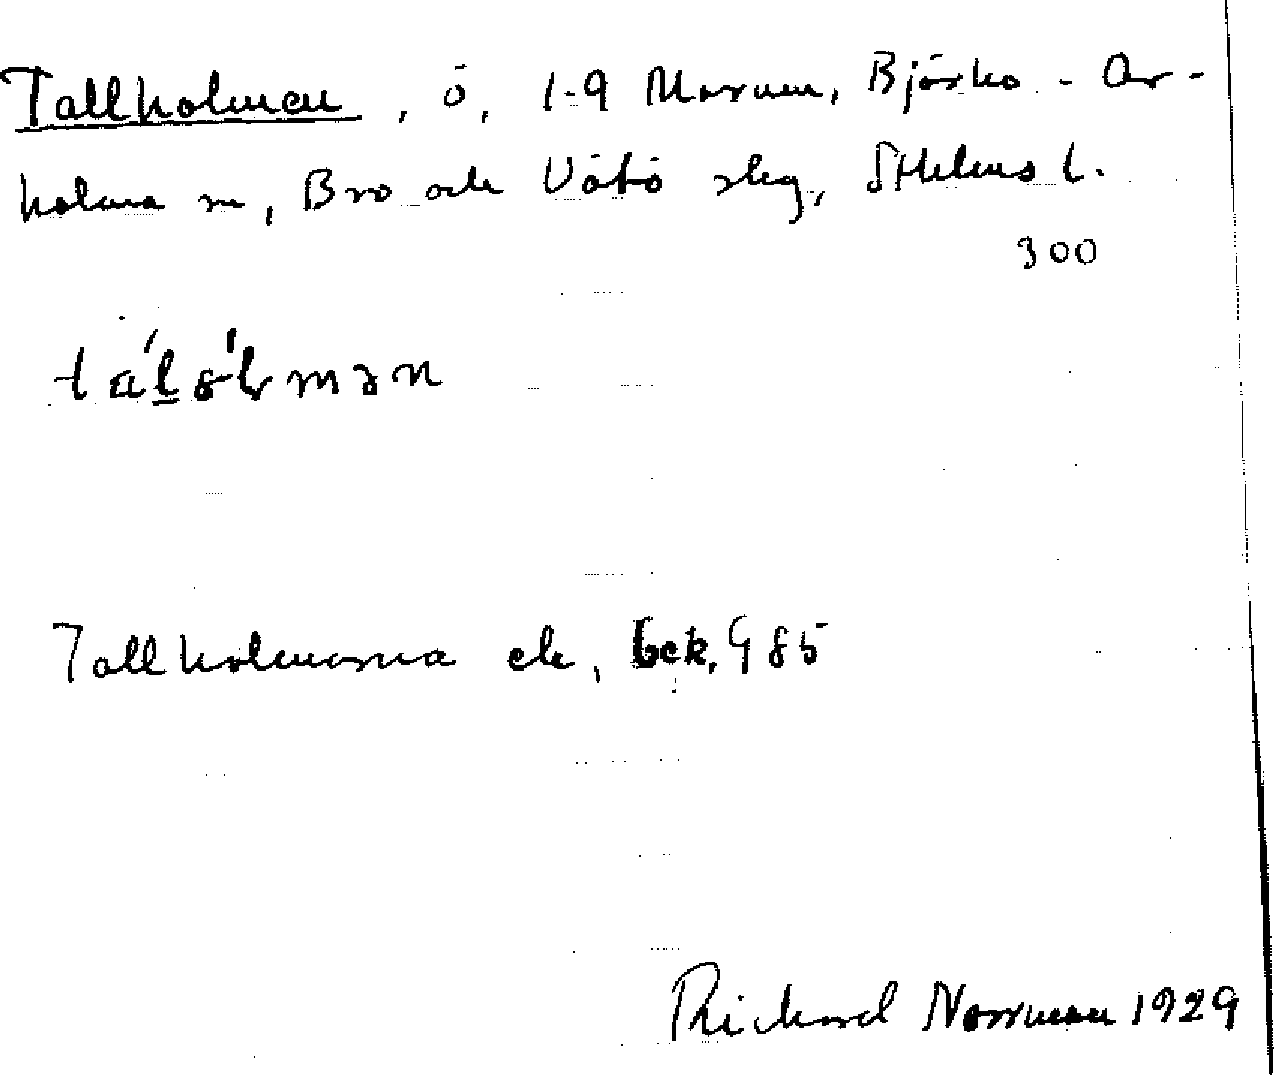 Tallholmen, ö, 1-9 Marum, Björkö - Ar-
holma sn, Bro och Vätö slg, Sthlms l.
300
tálólmən
Tallholmarna ek, bek, G 85
Richard Norrman 1929